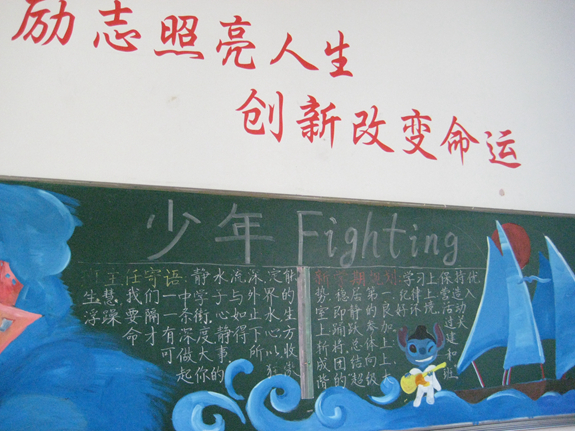 励志照亮人生
创新改变命运
少年 Fighting
主任寄语:静水流深,定能
生慧.我们一中学子与外界的
浮躁要隔一条街,心如止水生
命才有深度,静得下心方
可做大事,所以收
起你的
新学期规划:学习上保持优
势.稳居第一,纪律上营造入
室即静的良好环境.活动
上踊跃参加
新将.总体上
成团结向上
谐的"超级
班